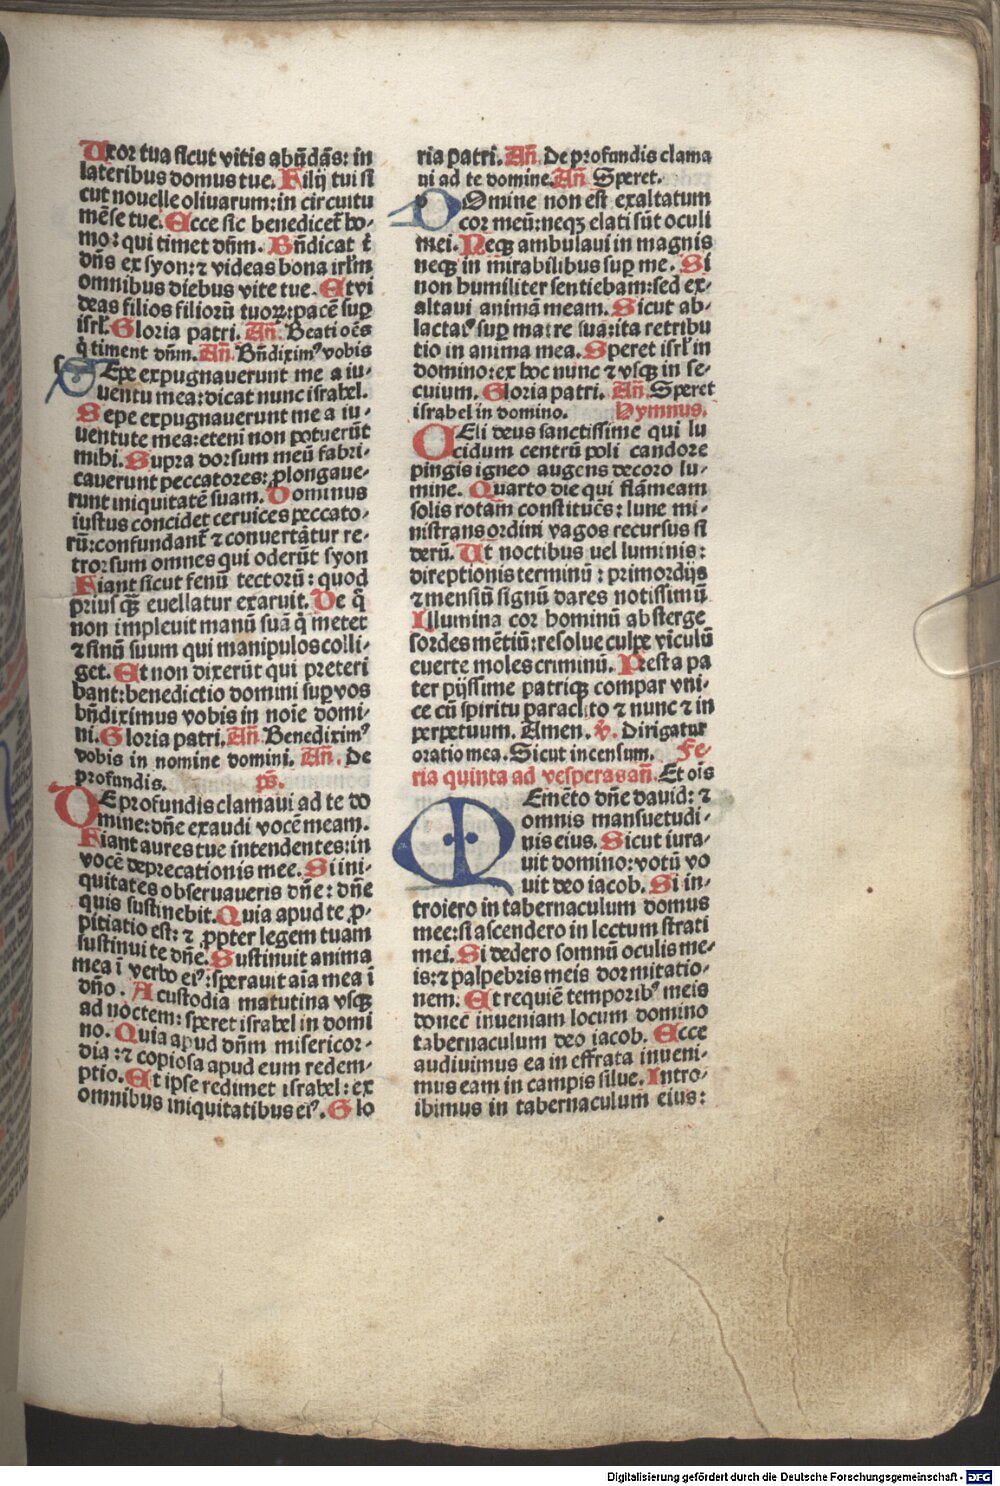 Uxor tua sicut vitis abūdās: in
lateribus domus tue. Filij tui si
cut nouelle oliuarum: in circuitu
mēse tue. Ecce sic benedicet̄ ho-
mo: qui timet dn̄m. Bn̄dicat t̄
dn̄s ex syon: ⁊ videas bona irl̄m
omnibus diebus vite tue. Et vi
deas filios filiorū tuoꝝ: pacē suꝑ
isrl̄. Gloria patri. An̄. Beati oēs
q̄ timent dn̄m. An̄. Bn̄diximꝰ vobis
SEpe expugnauerunt me a iu-
uentu mea: dicat nunc israhel.
Sepe expugnauerunt me a iu-
uentute mea: eteni non potuerūt
mihi. Supra dorsum meū fabri-
cauerunt peccatores: ꝓlongaue-
runt iniquitatē suam. Dominus
iustus concidet ceruices peccato-
rū: confundant̄ ⁊ conuertātur re-
trorsum omnes qui oderūt syon
Fiant sicut fenū tectorū: quod
prius qƺ̄ euellatur exaruit. De q̄
non impleuit manū suā q̄ metet
⁊ sinū suum qui manipulos colli-
get. Et non dixerūt qui preteri
bant: benedictio domini suꝑ vos
bn̄diximus vobis in noīe domi-
ni. Gloria patri. An̄. Benediximꝰ
vobis in nomine domini. An̄. De
profundis. ps̄.
DE profundis clamaui ad te do
mine: dn̄e exaudi vocē meam.
Fiant aures tue intendentes: in
vocē deprecationis mee. Si ini-
quitates obseruaueris dn̄e: dn̄e
quis sustinebit. Quia apud te ꝓ-
pitiatio est: ⁊ ꝓpter legem tuam
sustinui te dn̄e. Sustinuit anima
mea ī verbo eiꝰ: sperauit aīa mea ī
dn̄o. A custodia matutina vsqƺ
ad noctem: speret israhel in domi
no. Quia apud dn̄m misericor-
dia: ⁊ copiosa apud eum redem-
ptio. Et ipse redimet israhel: ex
omnibus iniquitatibus eiꝰ. Glo
ria patri. An̄. De profundis clama
ui ad te domine. An̄. Speret.
DOmine non est exaltatum
cor meū: neqƺ elati sūt oculi
mei. Neqƺ ambulaui in magnis
neqƺ in mirabilibus suꝑ me. Si
non humiliter sentiebam: sed ex-
altaui animā meam. Sicut ab-
lactatꝰ suꝑ matre sua: ita retribu
tio in anima mea. Speret isrl̄ in
domino: ex hoc nunc ⁊ vsqƺ in se-
culum. Gloria patri. An̄. Speret
israhel in domino. Hymnus.
CEli deus sanctissime qui lu
cidum centrū poli candore
pingis igneo augens decoro lu-
mine. Quarto die qui flāmeam
solis rotam constituēs: lune mi-
nistrans ordini vagos recursus si
derū. Ut noctibus uel luminis:
direptionis terminū: primordijs
⁊ mensiū signū dares notissimū
Illumina cor hominū absterge
sordes mētiū: resolue culpe vīculū
euerte moles criminū. Presta pa
ter pijssime patriqƺ compar vni-
ce cū spiritu paraclito ⁊ nunc ⁊ in
perpetuum. Amen. ℣. Dirigatur
oratio mea. Sicut incensum. Fe-
ria quinta ad vesperas an̄. Et oīs
MEmēto dn̄e dauid: ⁊
omnis mansuetudi-
nis eius. Sicut iura-
uit domino: votū vo
uit deo iacob. Si in-
troiero in tabernaculum domus
mee: si ascendero in lectum strati
mei. Si dedero somnū oculis me-
is: ⁊ palpebris meis dormitatio-
nem. Et requiē temporibꝰ meis
donec inueniam locum domino
tabernaculum deo iacob. Ecce
audiuimus ea in effrata inueni-
mus eam in campis silue. Intro-
ibimus in tabernaculum eius:
Digitalisierung gefördert durch die Deutsche Forschungsgemeinschaft - DFG